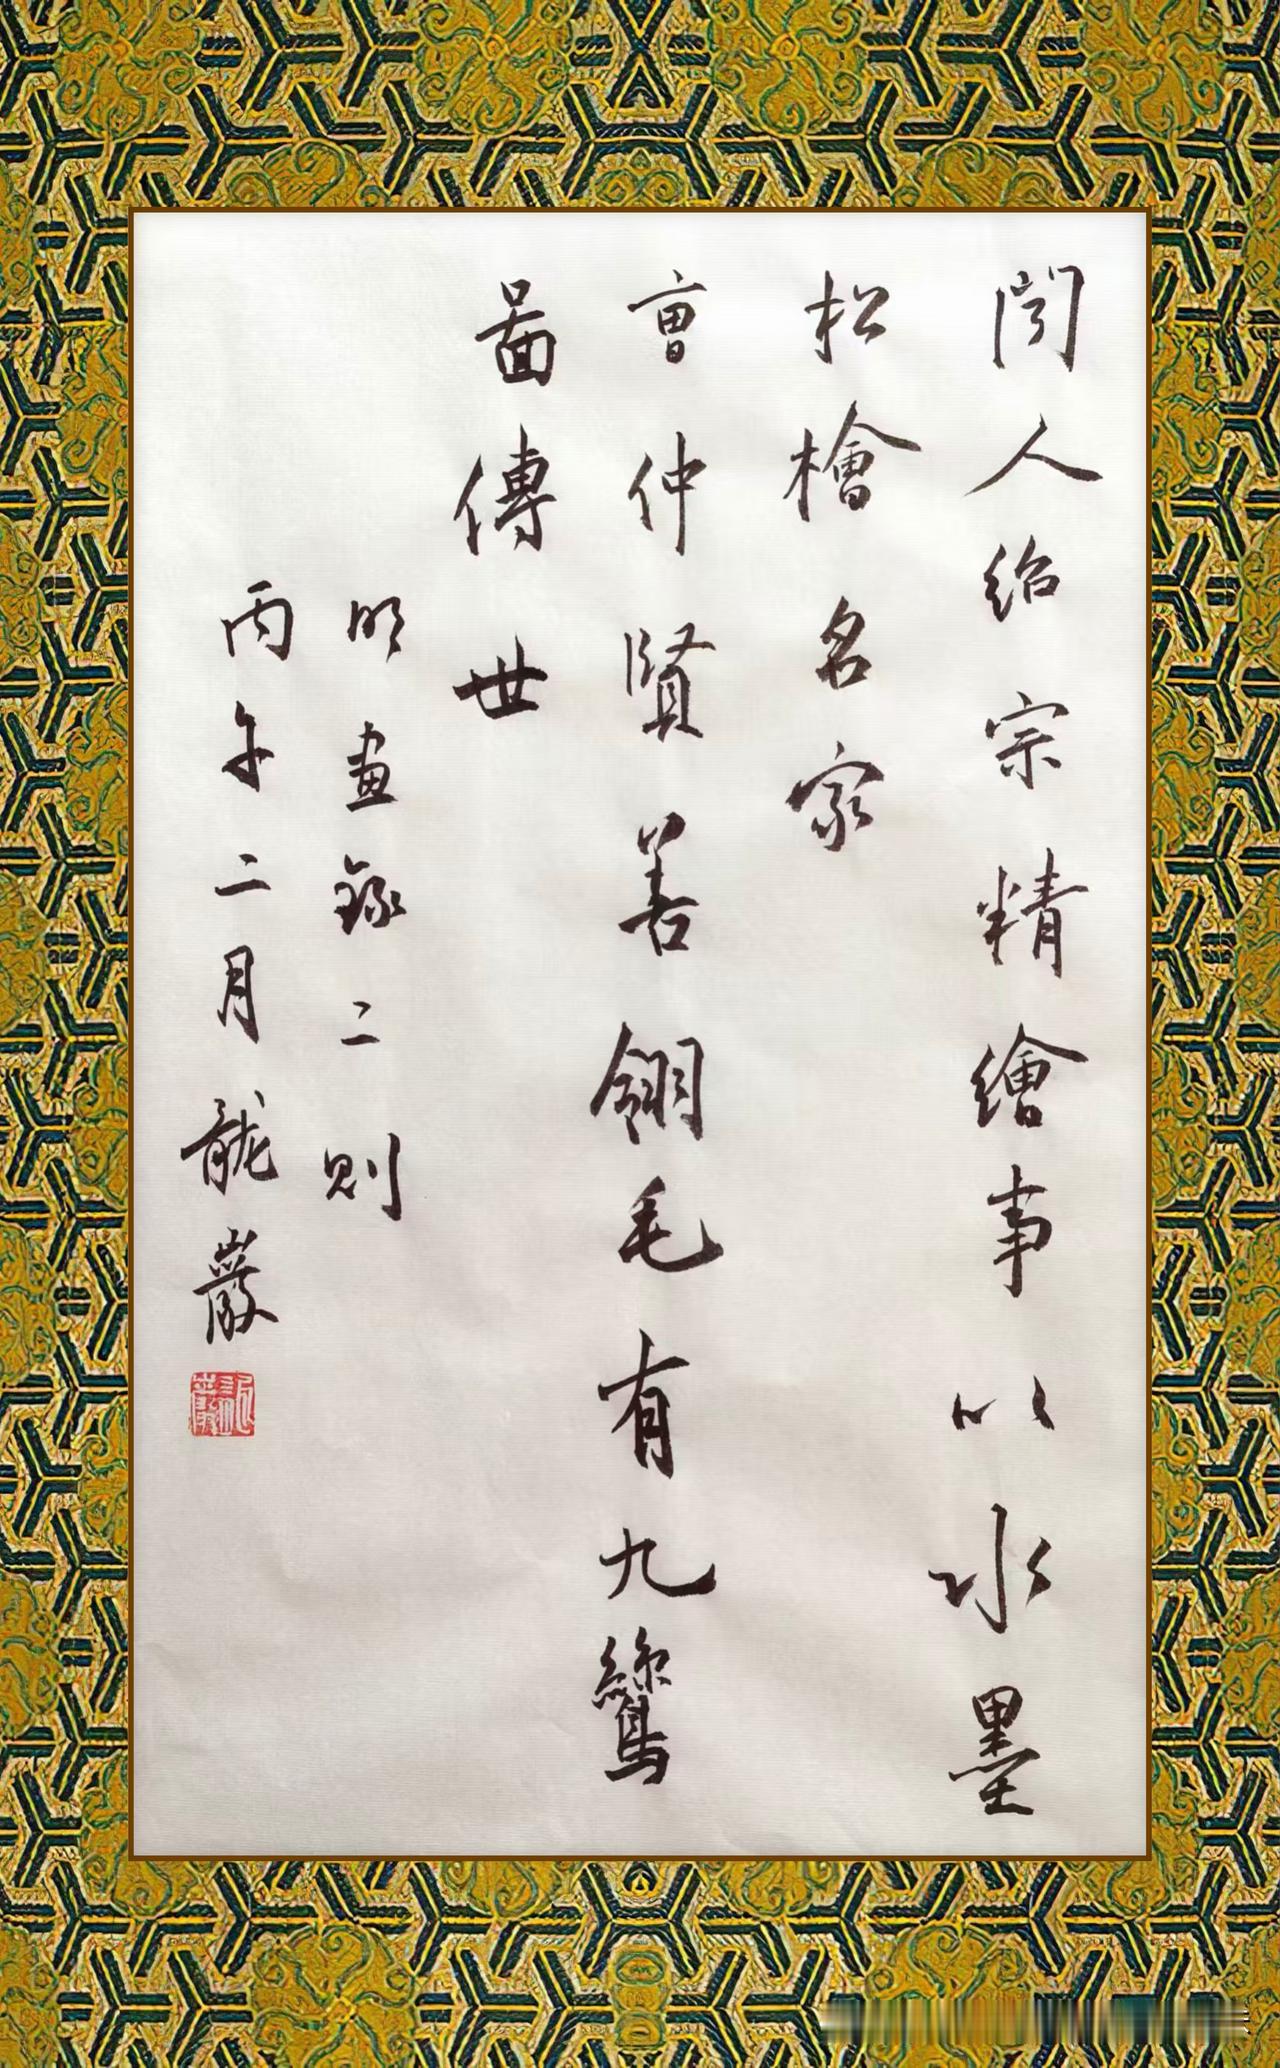 聞人绍宗精繪事以水墨
松檜名家
曹仲賢善翎毛有九鸞
啚傳世
明畫録二則
丙午二月龍巖